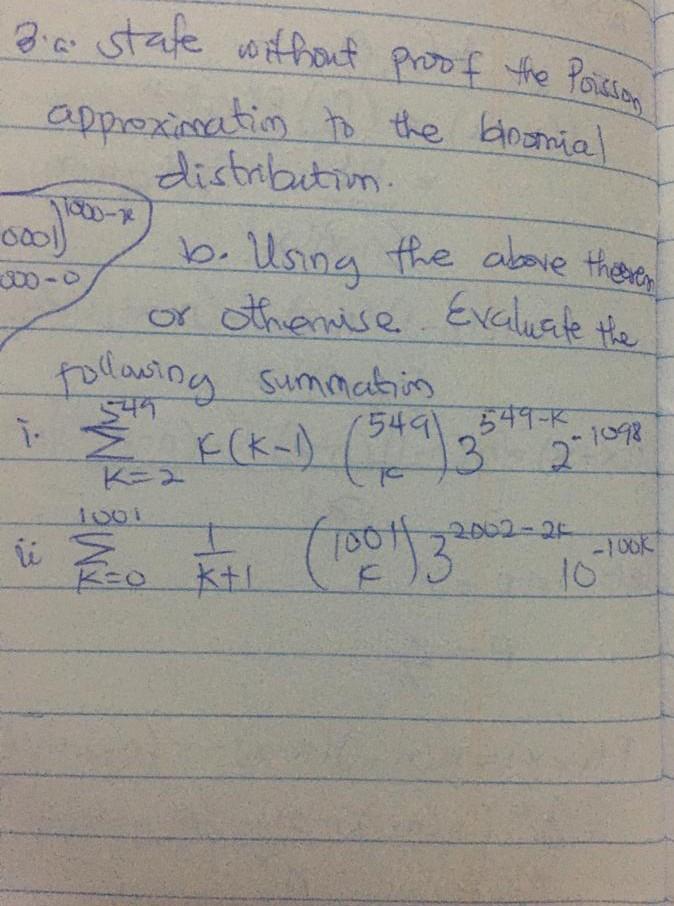 3.a. state without proof the Poisson
approximation to the binomial
distribution.
0001)^{1000-x}
000-0
b. Using the above theorem
or otherwise. Evaluate the
following summation
i. \sum_{K=2}^{549} K(K-1) \binom{549}{K} 3^{549-K} 2^{-1098}
ii \sum_{K=0}^{1001} \frac{1}{K+1} \binom{1001}{K} 3^{2002-2K} 10^{-100K}